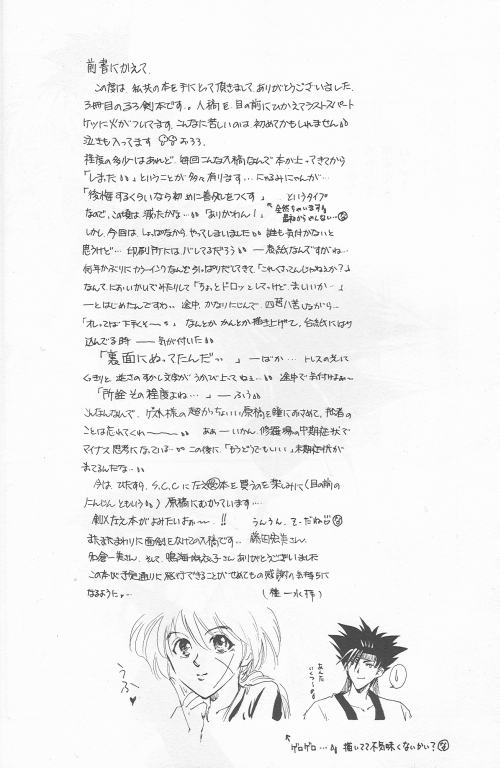 前書にかえて
この度は、私共の本を手にとって頂きまして、ありがとうございました。
3冊目のるろ剣本です。。入稿を目の前にひかえてラストスパート
ケツに火がついてます。こんなに苦しいのは、初めてかもしれません
泣きも入ってます おろろ。
程度の多少はあれど、毎回こんな入稿なんで本が上ってきてから
「しまった」ということが多々有ります…。なるみにゃんが…
「後悔するくらいなら初めに善処をつくす」 というタイプ
なので、この頃は減ったかな…「ありかわん!」
全然ちゃいます
最初からせんない…
しかし、今回は、しょっぱなから、やってしまいました 誰も気付かないと
思うけど… 印刷所にはバレてるだろう ― 表紙なんですがね…
何年かぶりにカラーインクなんぞ引っぱりだしてきて「これくさってんじゃねぇか?」
なんて、においかいでみたりして「ちょっとドロッとしてっけど、ま、いいか―」
―とはじめたんですわ。途中、かなりにじんで、四苦八苦しながら…
「オレってば下手くそ―」 なんとかかんとか描き上げて、台紙にはり
込んでる時 ―― 気が付いた
「裏面にぬってたんだっ。」 ―ばか… トレスの先いて
くっきりと逆さのすかし文字がうかび上ってねぇ… 途中で気付けよぉ〜
「所詮その程度よね…」 ― ふう
こんなんなんで、ゲスト様の超かっちょいい原稿を瞳におさめて、拙者の
ことは忘れてくれ〜〜 ああ―いかん、修羅場の中期症状で
マイナス思考になっている… この後に、「もうどうでもいい」末期症状が
まってるんだな…
今は、ひたすら、S.C.Cに左之本を買うのを楽しみに(目の前の
にんじんともいう) 原稿にむかっています…
剣×左之本がよみたいよぉ〜。!! うんうん。で・だね
またまたまわりに面倒をかけての入稿です… 藤田宏美さん、
鳴海麻衣子さんありがとうございました
この本が予定通りに発行できることがせめてもの感謝の気持ちに
なるように。
うふ♥
あんた
いくつ
ゲロゲロ… 描いてて不気味くないかい?